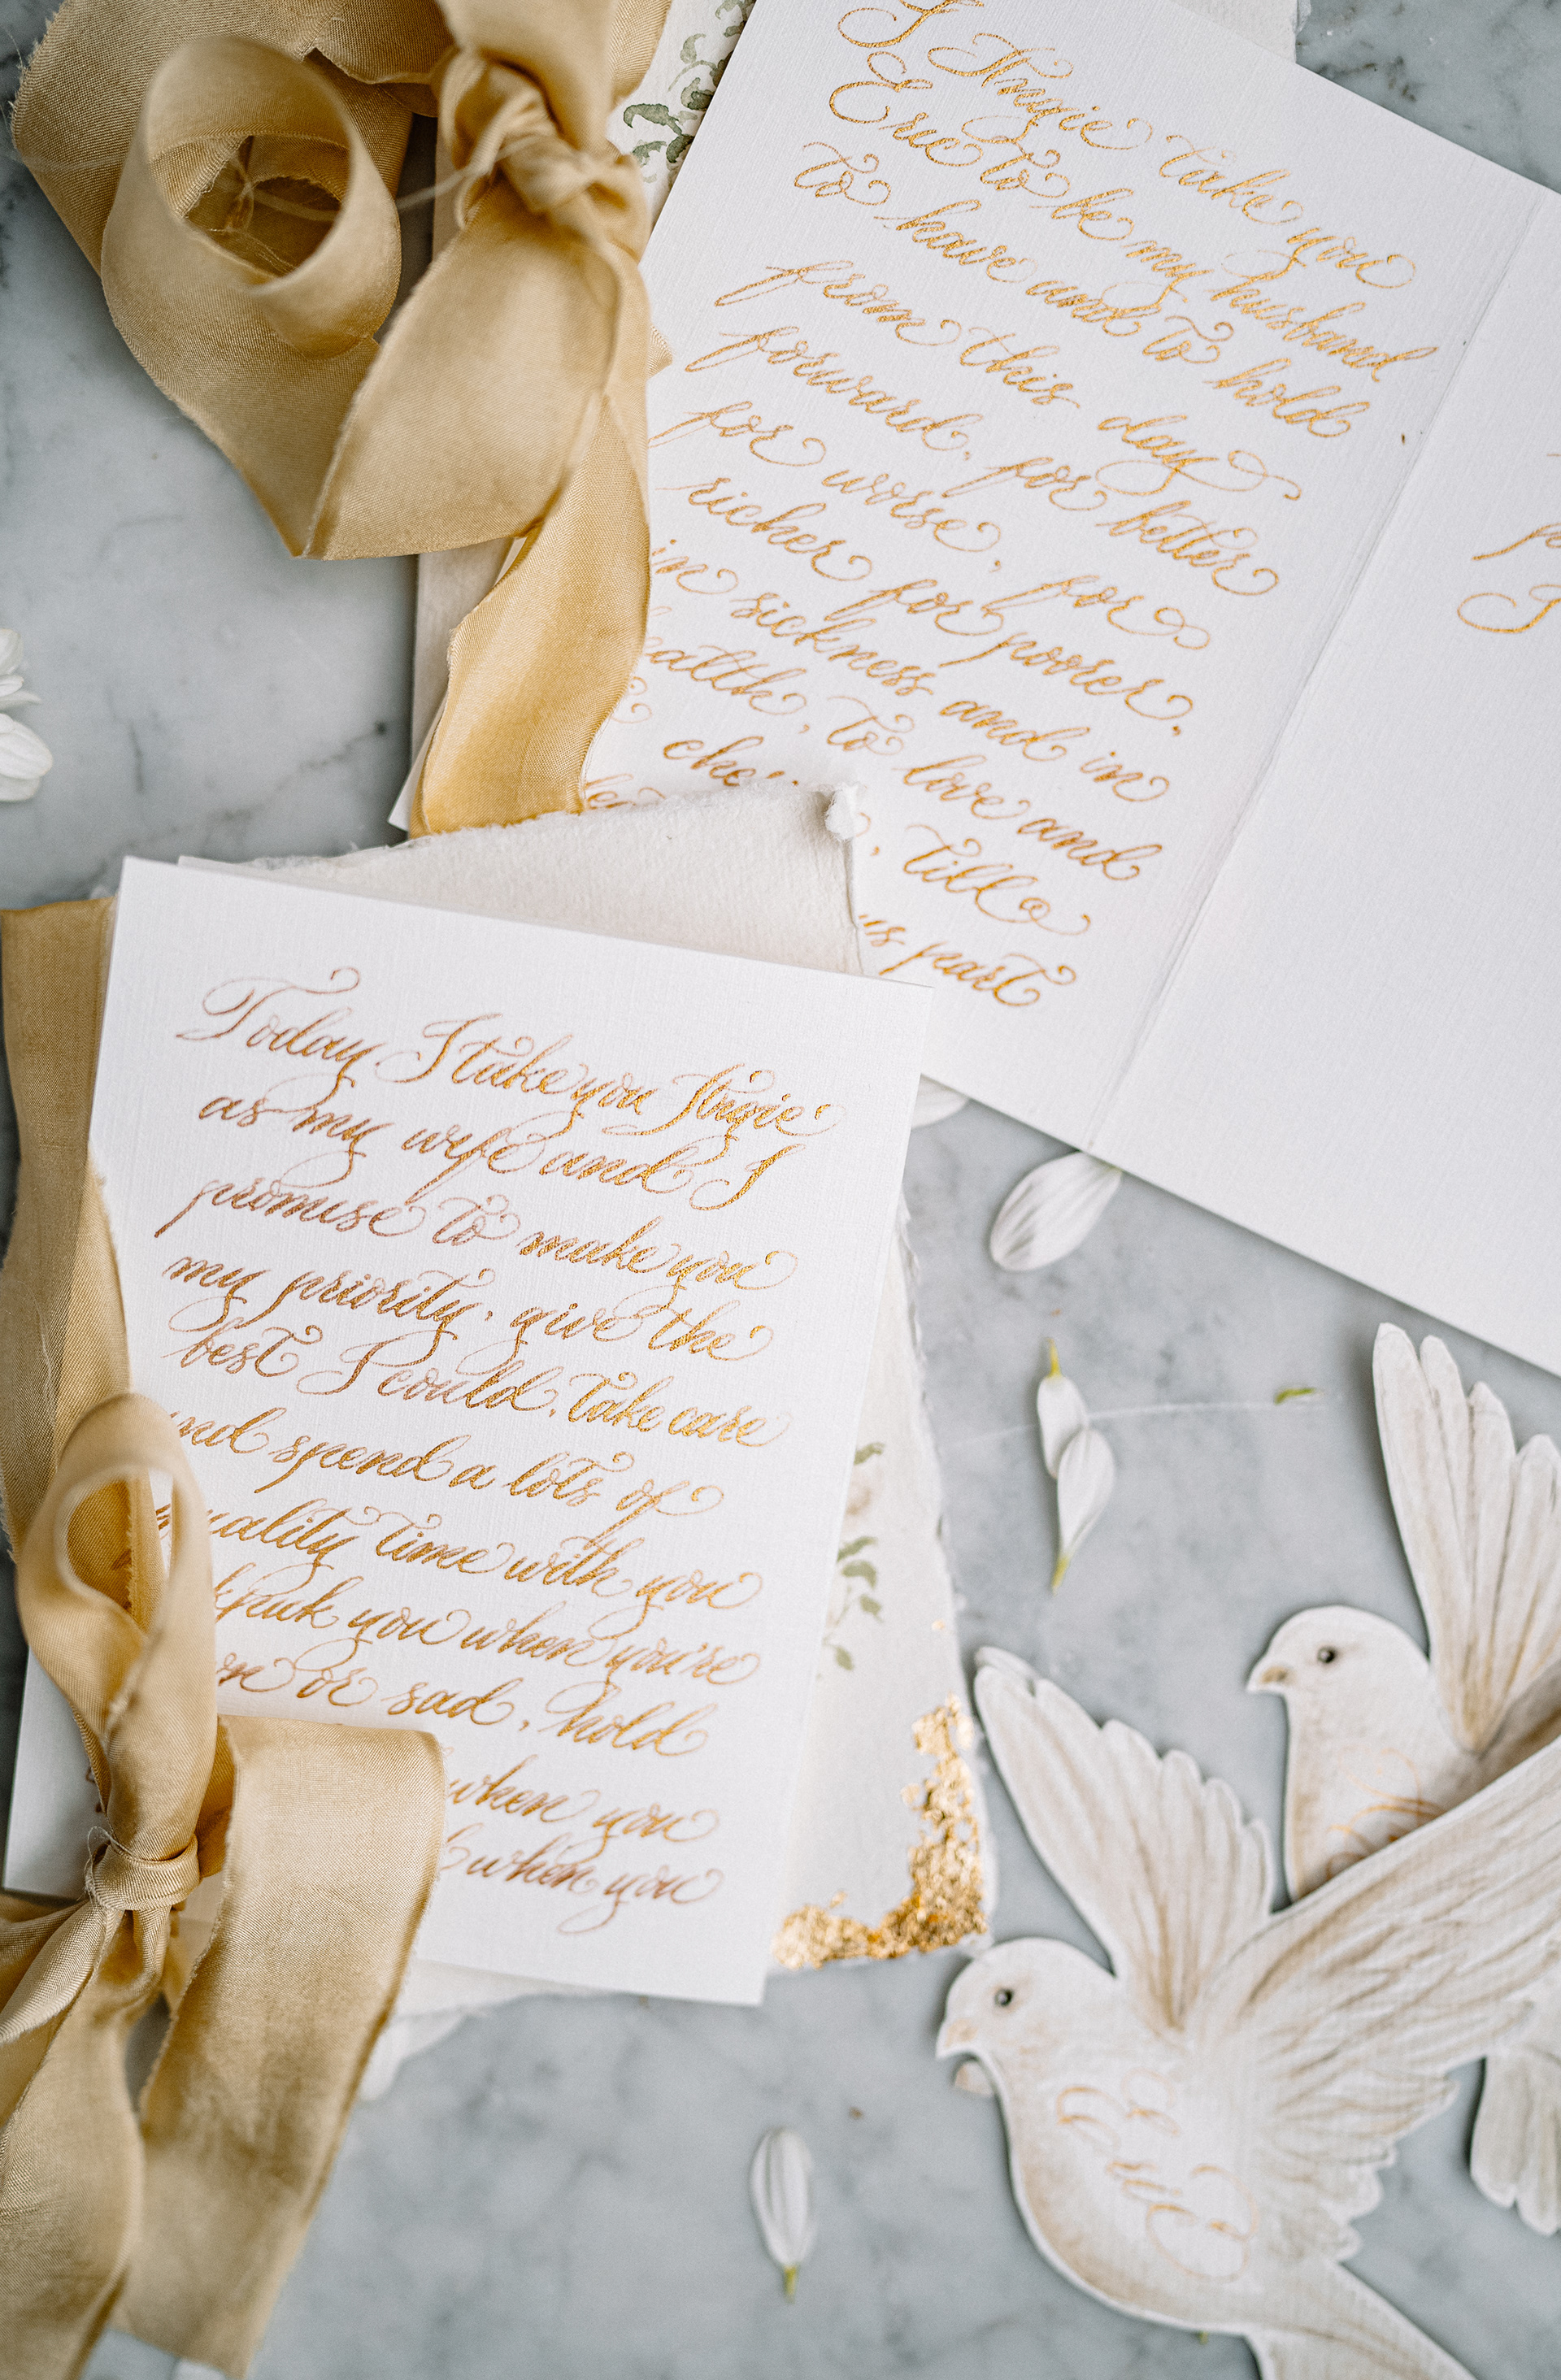 I Angie take you
Eric to be my husband
to have and to hold
from this day
forward, for better
for worse, for
richer for poorer,
in sickness and in
to love and
till
us part
Today I take you Angie
as my wife and I
promise to make you
my priority, give the
best I could, take care
spend a lots of
time with you
you when you're
or sad, hold
when you
when you
Eric